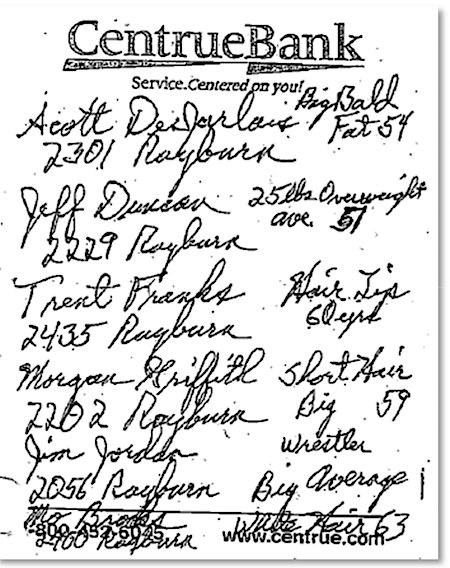 CentrueBank
Service.Centered on you!
Scott DesJarlais Big Bald
2301 Rayburn Fat 54
Jeff Duncan 25 lbs. Overweight
2229 Rayburn ave. 51
Trent Franks Hair Lip
2435 Rayburn 60 yrs
Morgan Griffith Short Hair
2202 Rayburn Big 59
Jim Jordan Wrestler
2056 Rayburn Big Average
Mo Brooks White Hair 63
2400 Rayburn
-800-452-6045 www.centrue.com